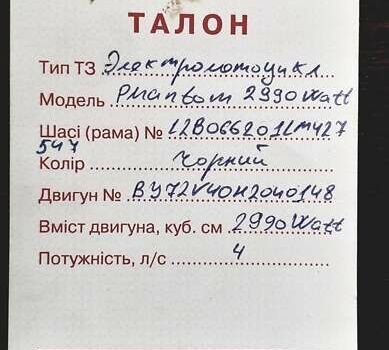 ТАЛОН
Тип ТЗ Электромотоцикл
Модель Phantom 2990Watt
Шасі (рама) № L2B066201LM427
547
Колір Чорний
Двигун № BY72V40H2040148
Вміст двигуна, куб. см 2990Watt
Потужність, л/с 4